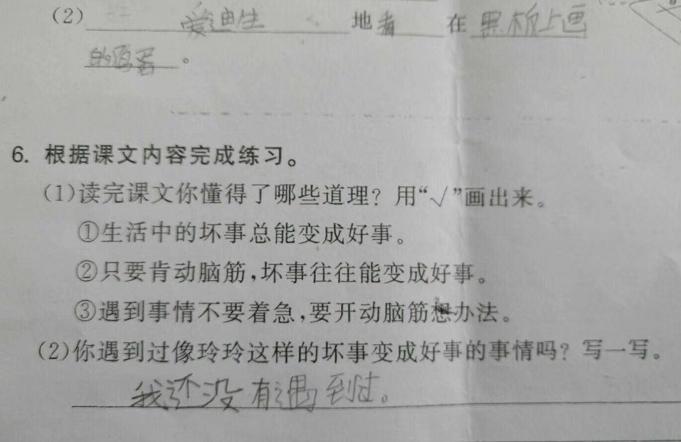 (2) 爱迪生 地 在 黑板上画
的
6. 根据课文内容完成练习。
(1)读完课文你懂得了哪些道理？用“√”画出来。
①生活中的坏事总能变成好事。
②只要肯动脑筋，坏事往往能变成好事。
③遇到事情不要着急，要开动脑筋想办法。
(2)你遇到过像玲玲这样的坏事变成好事的事情吗？写一写。
我还没有遇到过。